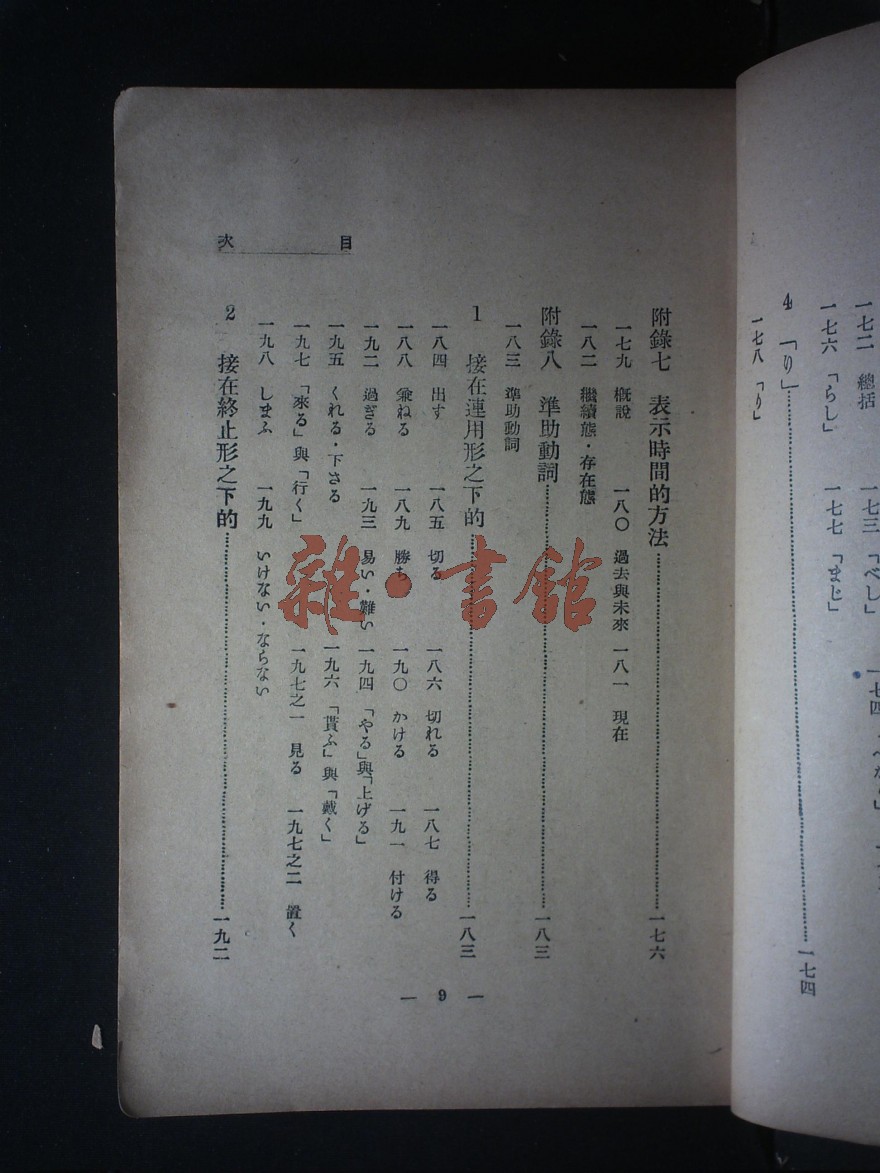 一七二　總括　一七三「べし」
一七六「らし」　一七七「まじ」
4　「り」……一七四
一七八「り」
目次
附錄七　表示時間的方法……一七六
一七九　概說　一八〇　過去與未來　一八一　現在
一八二　繼續態・存在態
附錄八　準助動詞……一八三
一八三　準助動詞
1　接在連用形之下的……一八三
一八四　出す　一八五　切る　一八六　切れる　一八七　得る
一八八　兼ねる　一八九　勝ち　一九〇　かける　一九一　付ける
一九二　過ぎる　一九三　易い・難い　一九四「やる」與「上げる」
一九五　くれる・下さる　一九六「貰ふ」與「戴く」
一九七「來る」與「行く」　一九七之一　見る　一九七之二　置く
一九八　しまふ　一九九　いけない・ならない
2　接在終止形之下的……一九二
— 9 —
雜・書館